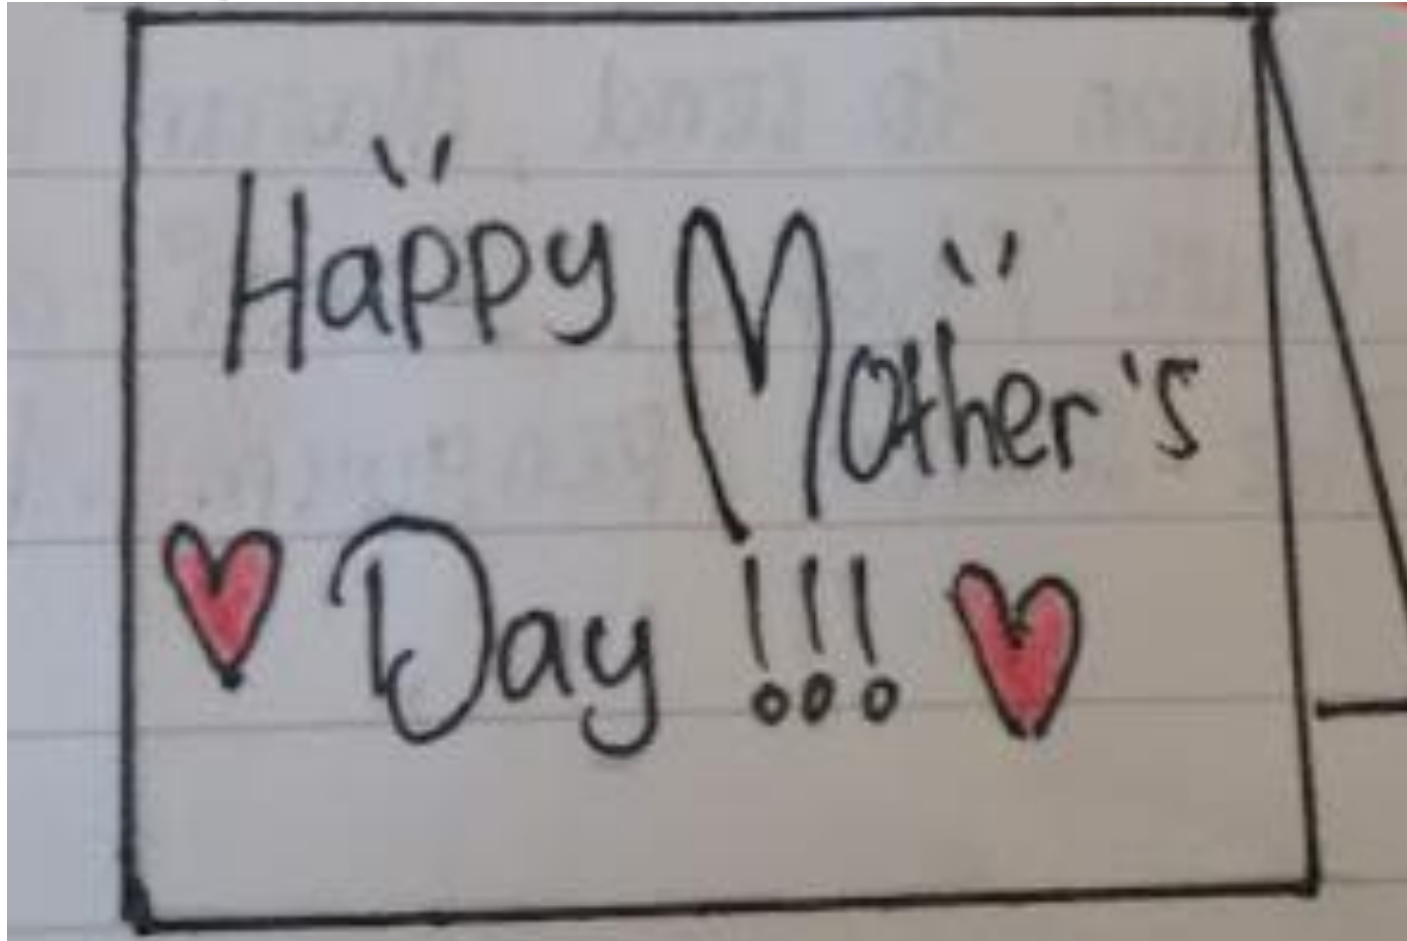 Happy Mother's
Day !!!